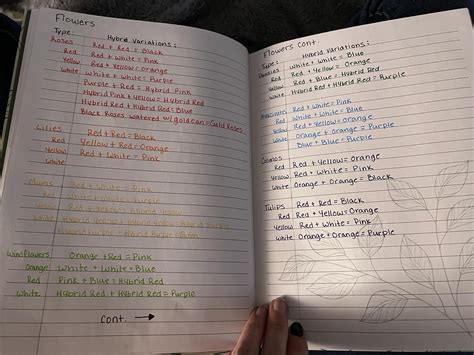 Flowers
Type: Hybrid Variations:
Roses Red + Red = Black
Red Red + White = Pink
Yellow Red + Yellow = Orange
White White + White = Purple
Purple + Red = Hybrid Pink
Hybrid Pink + Yellow = Hybrid Red
Hybrid Red + Hybrid Red = Blue
Black Roses watered w/gold can = Gold Roses
Lilies Red + Red = Black
Red Yellow + Red = Orange
Yellow Red + White = Pink
White
Mums White = Pink
White
Yellow Hybrid
White Hybrid Hybrid
Purple + Purple
Windflowers Orange + Red = Pink
Orange White + White = Blue
Red Pink + Blue = Hybrid Red
White Hybrid Red + Hybrid Red = Purple
Cont. →
Flowers Cont.
Type: Hybrid Variations:
Pansies White + White = Blue
Red Red + Yellow = Orange
Yellow Red + Blue = Hybrid Red
White Hybrid Red + Hybrid Red = Purple
Hyacinths Red + White = Pink
Red White + White = Blue
Yellow Red + Yellow = Orange
White Orange + Orange = Purple
Blue + Blue = Purple
Cosmos Red + Yellow = Orange
Red Red + White = Pink
Yellow Orange + Orange = Black
White
Tulips Red + Red = Black
Red Red + Yellow = Orange
Yellow Red + White = Pink
White Orange + Orange = Purple